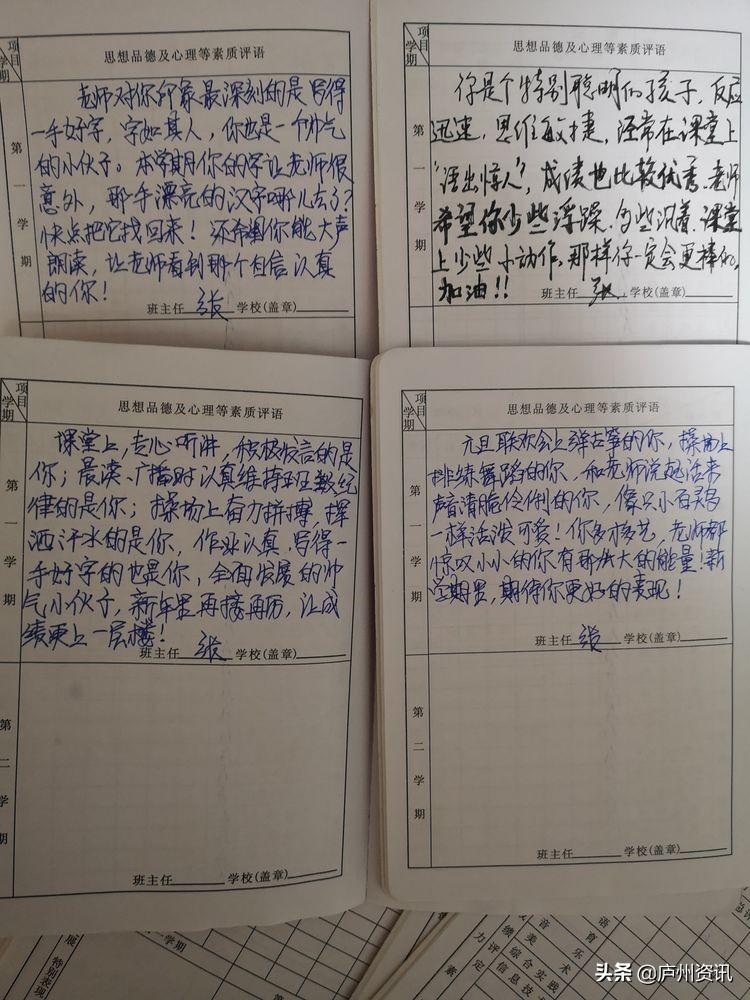 项目
学期
思想品德及心理等素质评语
第一学期
老师对你印象最深刻的是写得
一手好字,字如其人,你也是一个帅气
的小伙子。本学期你的字让老师很
意外,那手漂亮的汉字哪儿去了?
快点把它找回来!还希望你能大声
朗读,让老师看到那个自信认真
的你!
班主任 张 学校(盖章)
项目
学期
思想品德及心理等素质评语
第一学期
你是个特别聪明的孩子,反应
迅速,思维敏捷,经常在课堂上
“语出惊人”,成绩也比较优秀.老师
希望你少些浮躁.多些沉着.课堂
上少些小动作,那样你一定会更棒的,
加油!!
班主任 张 学校(盖章)
项目
学期
思想品德及心理等素质评语
第一学期
课堂上,专心听讲,积极发言的是
你;晨读、广播时认真维持班级纪
律的是你;操场上奋力拼搏,挥
洒汗水的是你,作业认真,写得一
手好字的也是你,全面发展的帅
气小伙子,新年里再接再厉,让成
绩更上一层楼!
班主任 张 学校(盖章)
第二学期
班主任 学校(盖章)
项目
学期
思想品德及心理等素质评语
第一学期
元旦联欢会上弹古筝的你,操场上
排练舞蹈的你,和老师说起话来
声音清脆伶俐的你,像只小百灵鸟
一样活泼可爱!你多才多艺,老师都
惊叹小小的你有那么大的能量!新
学期里,期待你更好的表现!
班主任 张 学校(盖章)
第二学期
班主任 学校(盖章)
二学期
特别表现
音乐
美术
综合实践
信息技
语
育
头条 @庐州资讯